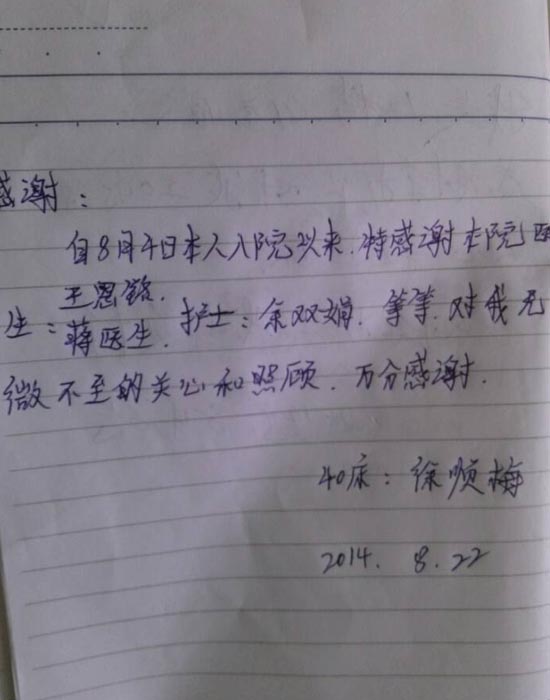 感谢：
自8月4日本人入院以来.特感谢本院医
王恩铭.
生：蒋医生.护士：余双娟.等等.对我无
微不至的关心和照顾.万分感谢.
40床：徐顺梅
2014.8.22